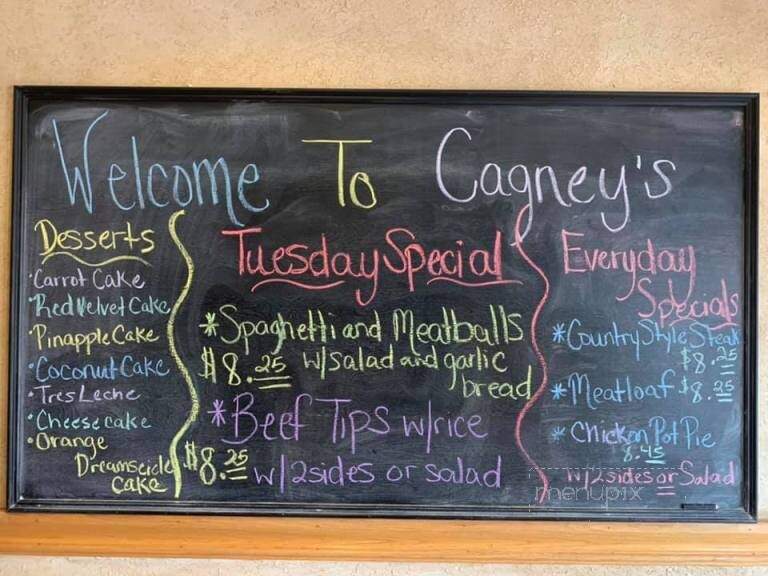 Welcome To Cagney's
Desserts
·Carrot Cake
·Red Velvet Cake
·Pinapple Cake
·Coconut Cake
·Tres Leche
·Cheesecake
·Orange
Dreamsicle
Cake
Tuesday Special
*Spaghetti and Meatballs
$8.25 w/salad and garlic
bread
*Beef Tips w/rice
$8.25 w/2sides or salad
Everyday
Specials
*Country Style Steak
$8.25
*Meatloaf $8.25
*Chicken Pot Pie
8.45
w/2sides or Salad
menupix